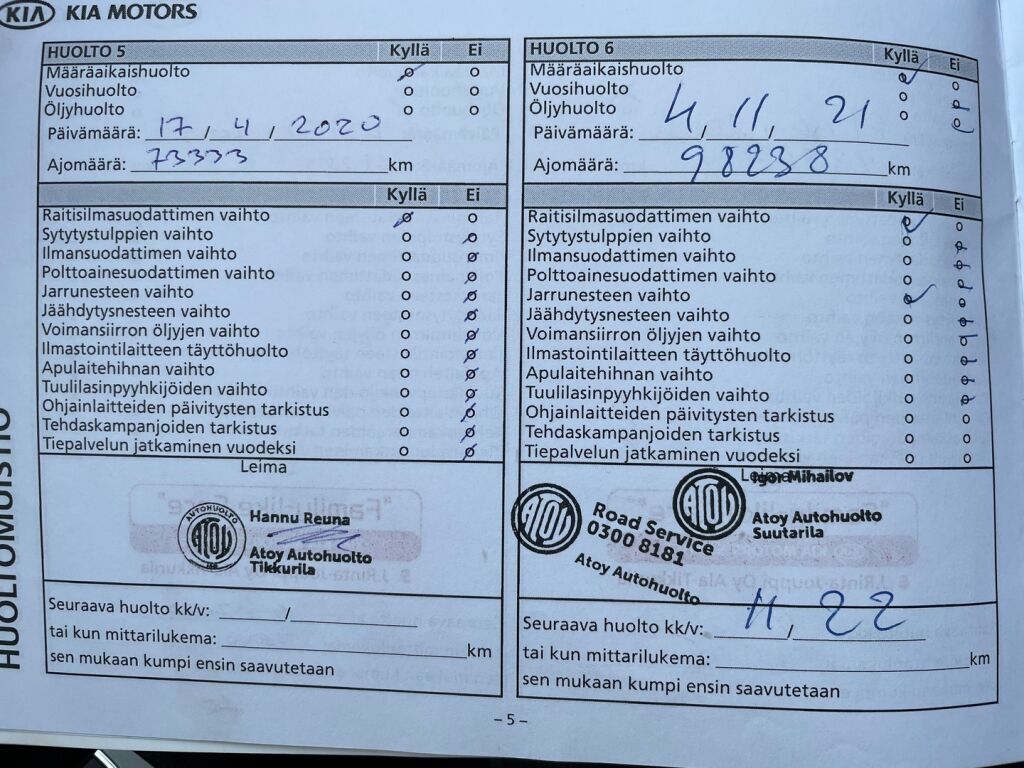 KIA KIA MOTORS
HUOLTOMUISTIO
HUOLTO 5 Kyllä Ei
Määräaikaishuolto
Vuosihuolto
Öljyhuolto
Päivämäärä: 17 / 4 / 2020
Ajomäärä: 73333 km
Kyllä Ei
Raitisilmasuodattimen vaihto
Sytytystulppien vaihto
Ilmansuodattimen vaihto
Polttoainesuodattimen vaihto
Jarrunesteen vaihto
Jäähdytysnesteen vaihto
Voimansiirron öljyjen vaihto
Ilmastointilaitteen täyttöhuolto
Apulaitehihnan vaihto
Tuulilasinpyyhkijöiden vaihto
Ohjainlaitteiden päivitysten tarkistus
Tehdaskampanjoiden tarkistus
Tiepalvelun jatkaminen vuodeksi
Leima
AUTOHUOLTO
ATOY
Hannu Reuna
Atoy Autohuolto
Tikkurila
Seuraava huolto kk/v: /
tai kun mittarilukema: km
sen mukaan kumpi ensin saavutetaan
HUOLTO 6 Kyllä Ei
Määräaikaishuolto
Vuosihuolto
Öljyhuolto
Päivämäärä: 4 / 11 / 21
Ajomäärä: 98238 km
Kyllä Ei
Raitisilmasuodattimen vaihto
Sytytystulppien vaihto
Ilmansuodattimen vaihto
Polttoainesuodattimen vaihto
Jarrunesteen vaihto
Jäähdytysnesteen vaihto
Voimansiirron öljyjen vaihto
Ilmastointilaitteen täyttöhuolto
Apulaitehihnan vaihto
Tuulilasinpyyhkijöiden vaihto
Ohjainlaitteiden päivitysten tarkistus
Tehdaskampanjoiden tarkistus
Tiepalvelun jatkaminen vuodeksi
Leima
Igor Mihailov
ATOY
Atoy Autohuolto
Suutarila
ATOY
Road Service
0300 8181
Atoy Autohuolto
Seuraava huolto kk/v: 11 / 22
tai kun mittarilukema: km
sen mukaan kumpi ensin saavutetaan
– 5 –